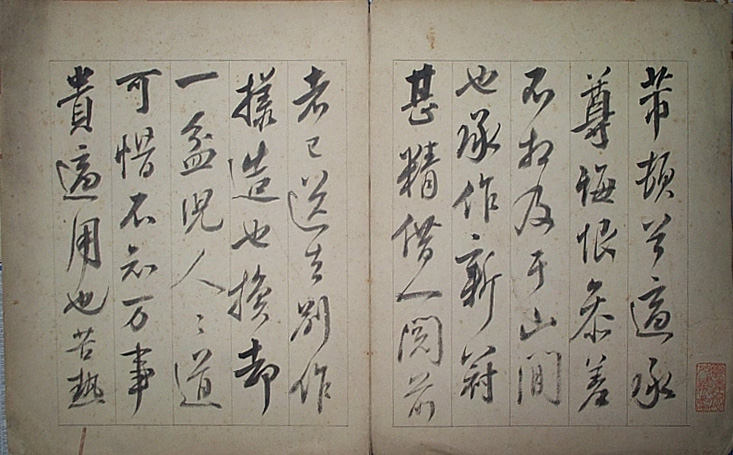 芾頓首適承
尊悔恨參差
不相及于山間
也承作新
甚精借一閱前
者已送去別作
樣造也換却
一盆児人々道
可惜不知万事
貴適用也苦熱